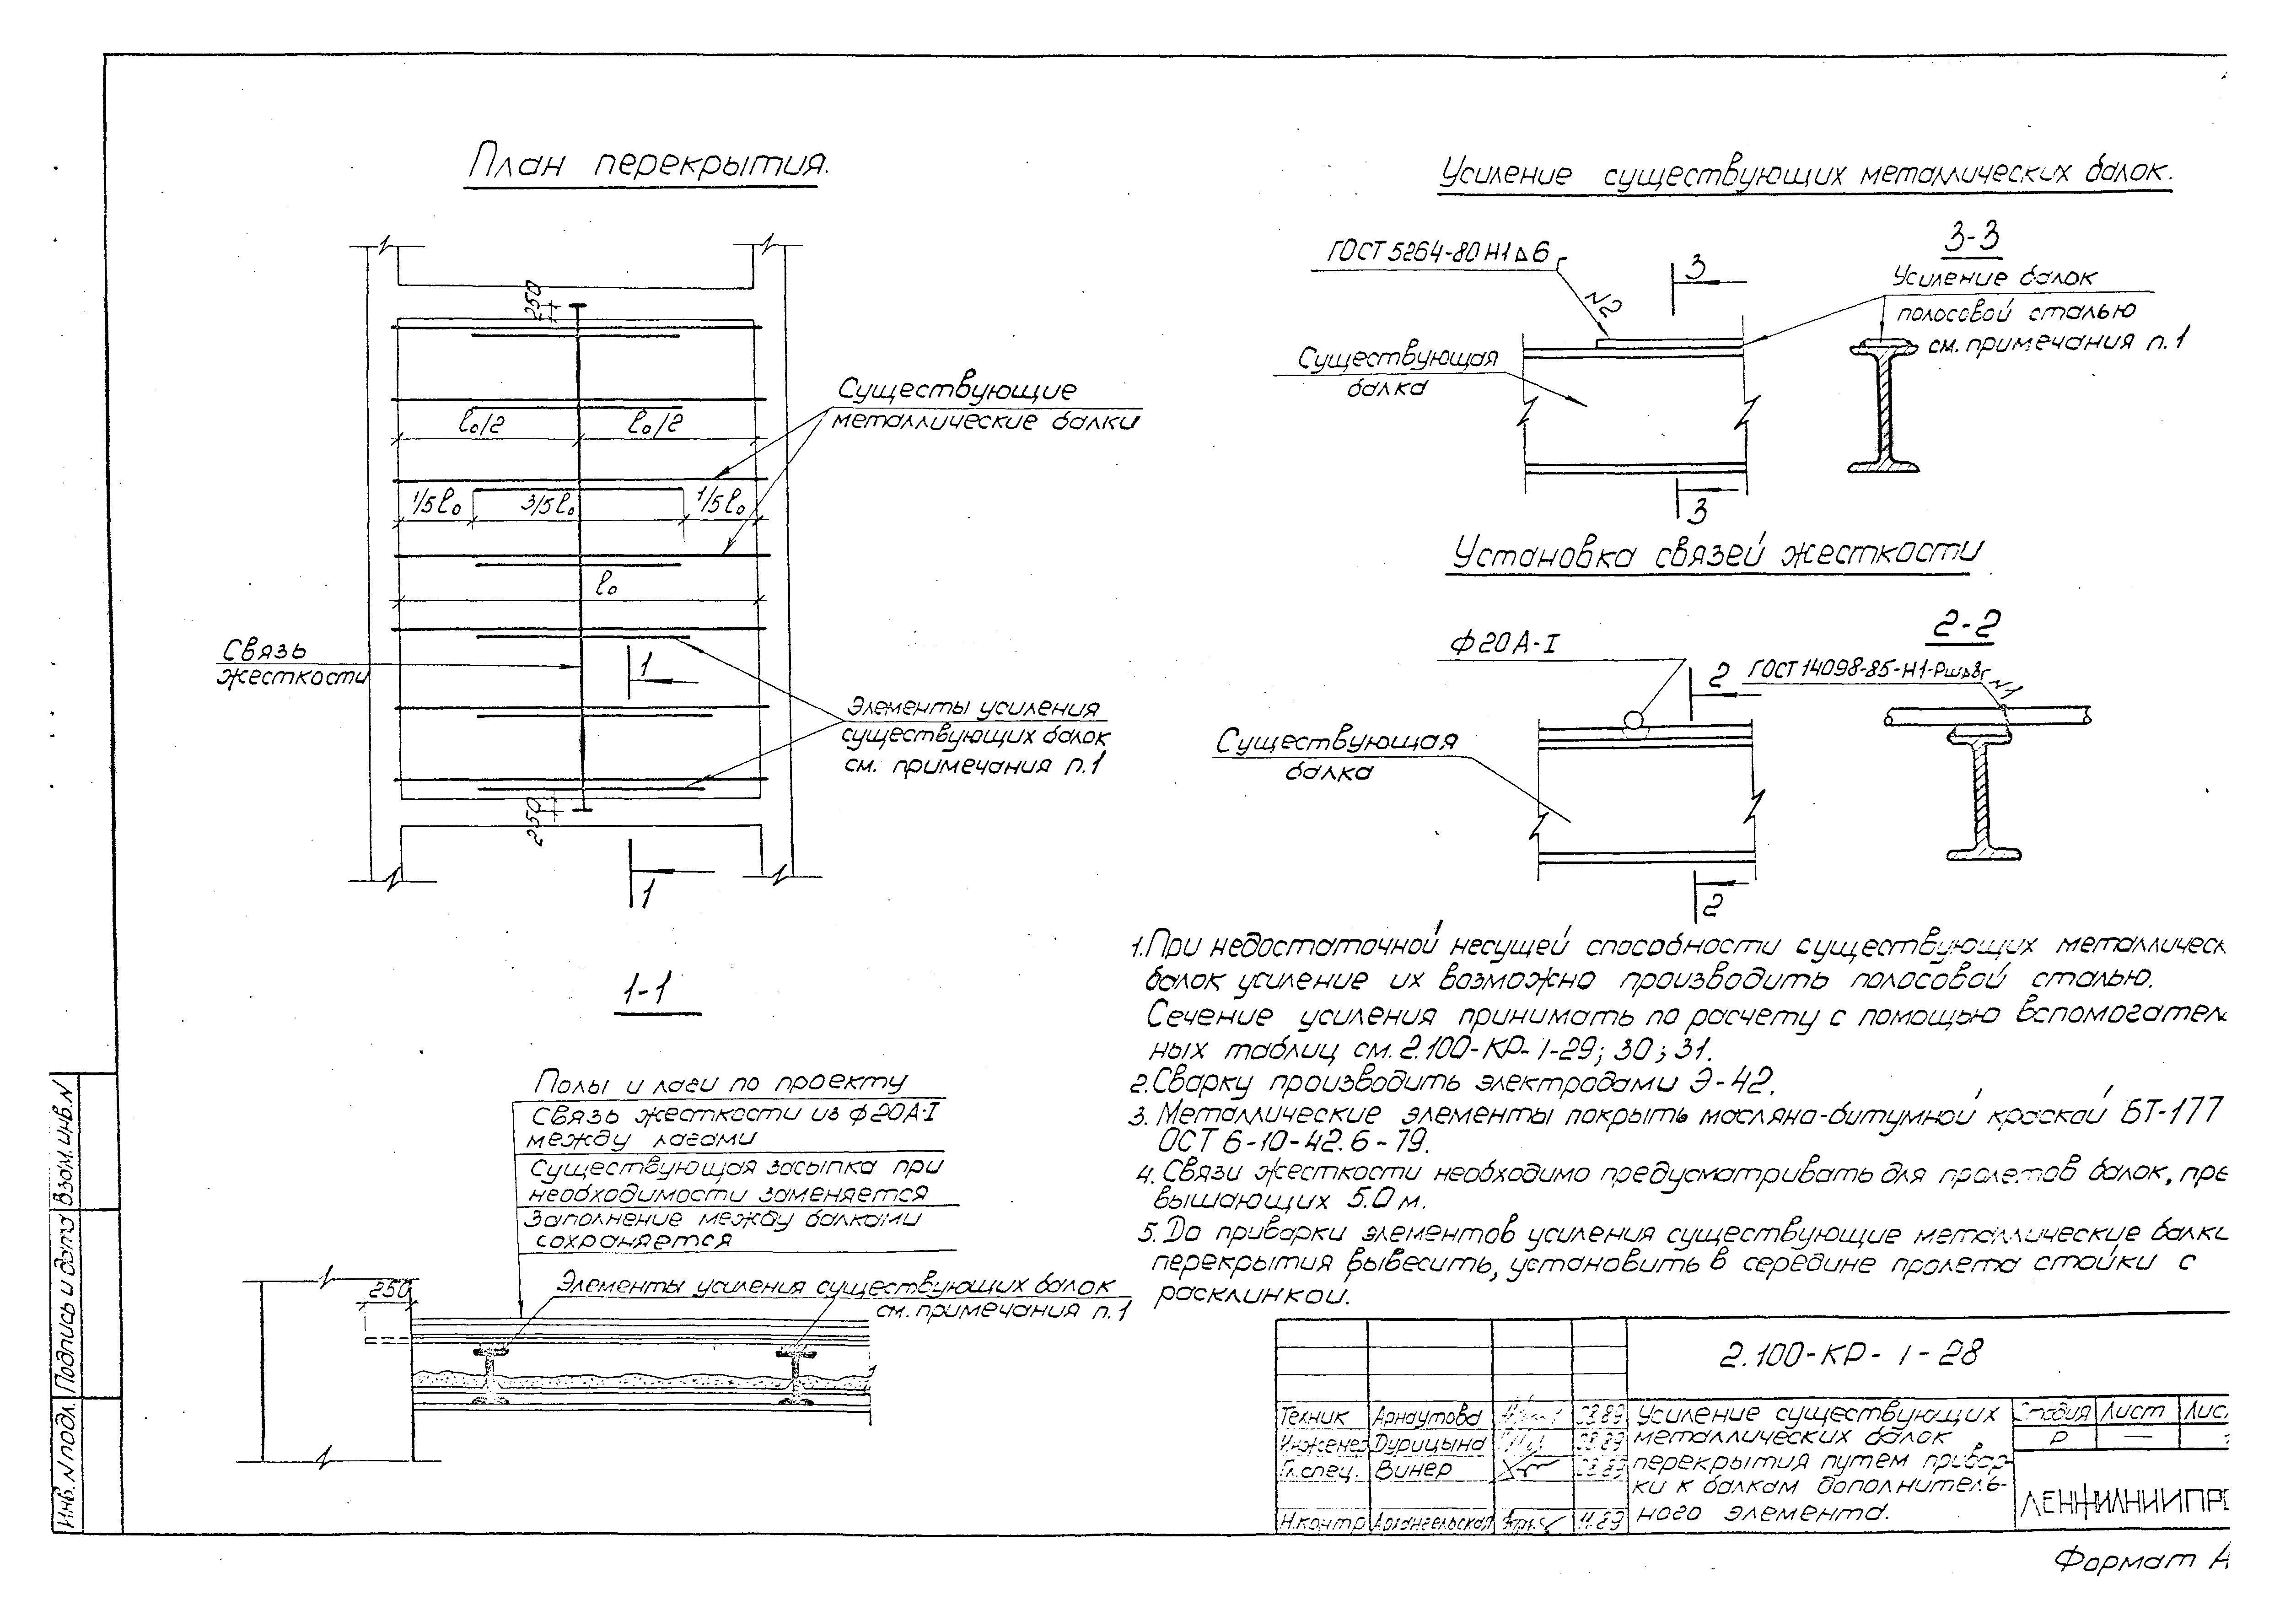 План перекрытия.
250
Существующие
металлические балки
l₀/2
l₀/2
1/5 l₀
3/5 l₀
1/5 l₀
l₀
Связь
жесткости
1
Элементы усиления
существующих балок
см. примечания п.1
250
1
1-1
Полы и лаги по проекту
Связь жесткости из ф20А-I
между лагами
Существующая засыпка при
необходимости заменяется
Заполнение между балками
сохраняется
Элементы усиления существующих балок
см. примечания п.1
250
Усиление существующих металлических балок.
ГОСТ 5264-80 Н1 ⊿ 6
N2
3
3-3
Усиление балок
полосовой сталью
см. примечания п.1
Существующая
балка
3
Установка связей жесткости
ф20А-I
2
2-2
ГОСТ 14098-85-Н1-Рш⊿8
N1
Существующая
балка
2
1.При недостаточной несущей способности существующих металлическ
балок усиление их возможно производить полосовой сталью.
Сечение усиления принимать по расчету с помощью вспомогател
ных таблиц см. 2.100-КР-1-29; 30; 31.
2.Сварку производить электродами Э-42.
3. Металлические элементы покрыть масляно-битумной краской БТ-177
ОСТ 6-10-42.6-79.
4. Связи жесткости необходимо предусматривать для пролетов балок, пре
вышающих 5.0 м.
5. До приварки элементов усиления существующие металлические балки
перекрытия вывесить, установить в середине пролета стойки с
расклинкой.
2.100-КР-1-28
Техник Арнаутова 08.89
Инженер Дурицына 08.89
Гл.спец. Винер 08.89
Н.контр Архангельская 11.89
Усиление существующих
металлических балок
перекрытия путем привар-
ки к балкам дополнитель-
ного элемента.
Стадия Лист Лис
Р —
ЛЕНЖИЛНИИПРО
Формат А
Инв. N подл. Подпись и дата Взам. инв. N